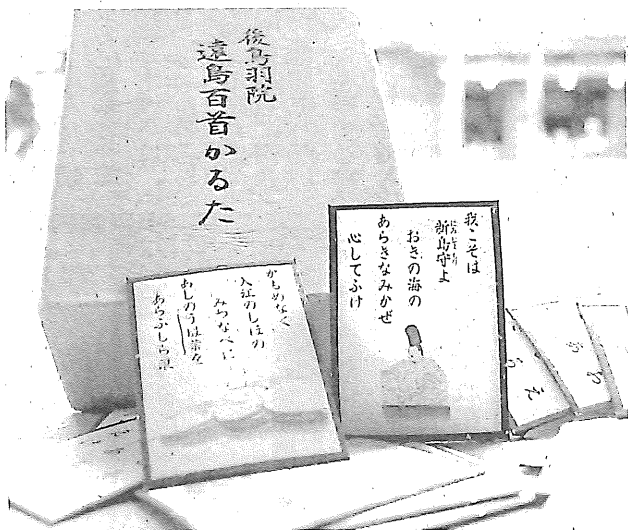 後鳥羽院
遠島百首かるた
我こそは
新島守よ
おきの海の
あらきなみかぜ
心してふけ
かもめなく
入江のしほの
みつなべに
あしのうは葉を
あらふしら浪